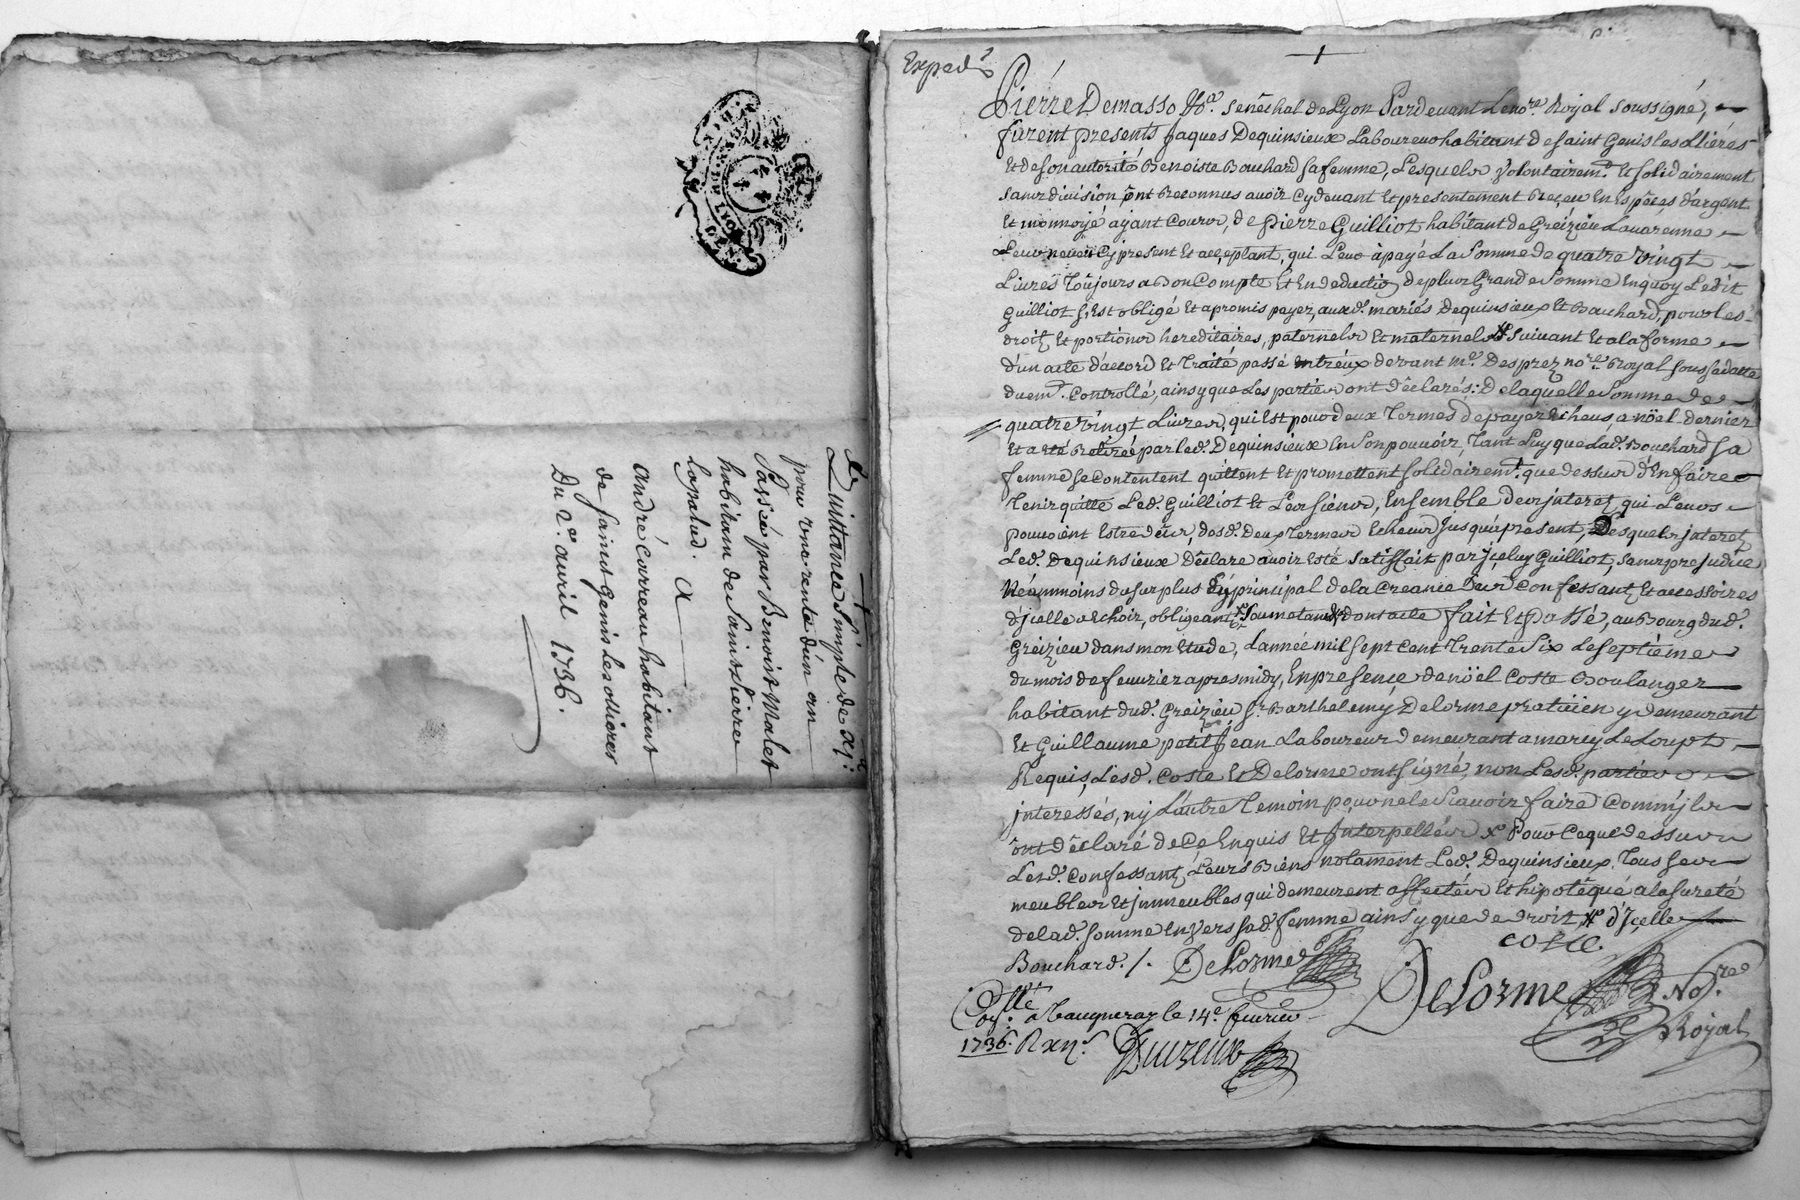 Quittance simple de XI.ⱽ
pour une rente d'un an
Passée par Benoist Malet
habitant de Saint Pierre
Lapalud. A
andré Carreau habitant
de saint Genis Les ollieres
Du 2.e auril 1736.
Exped.
Pierre Demasso &c.a senêchal de Lyon Pardeuant Le no.re Royal soussigné,
furent presents Jaques Dequinsieux Laboureur habitant de saint Genis les ollières
Et de son autorité Benoiste Bouchard sa femme, Lesquels Volontairem.t Et solidairement
sans diuision ônt Reconnus auoir Cydeuant Et presentement Reçeu En Espêces d'argent
Et monnoyé ayant Cours, de Pierre Guilliot habitant de Greizieu Lauarenne
Leur neueu Cy present Et acceptant, qui Leur à payé La Somme de quatre Vingt
Liures Toûjours a Bon Compte Et En deduction de plus Grande Somme En quoy Ledit
Guilliot s'Est obligé Et a promis payer, aux d. mariés Dequinsieux Et Bouchard, pour les
droits Et portions hereditaires, paternels Et maternels Suiuant Et a la forme
d'un acte d'accord Et Traité passé Entréux deuant m.e Desprez no.re Royal sous sa datte
duem.t Controllé, ainsy que Les parties ont dêclarés: De laquelle Somme de
quatre Vingt Liures, qui Est pour deux Termes de payer Echeus, a nöel dernier
Et a eté Retirée par led. Dequinsieux En Son pouuoir, Tant Luy que Lad. Bouchard sa
femme se Contentent quittent Et promettent solidairem.t que dessus d'En faire
Tenir quitte Led. Guilliot Et Les siens, Ensemble des jnterets qui Leurs
pouuoient Estre deus, desd. deux Termes Echeus Jusqu'a present, Desquels jnterets
Led. Dequinsieux dêclare auoir Esté satisffait par jceluy Guilliot, sans prejudice
Néammoins du surplus du principal de la Creance desd. Confessants Et accessoires
d'jcelle a Echoir, obligeant Soumetans dont acte fait Et Passé, au Bourg dud.
Greizieu dans mon Etude, L'année mil sept Cent Trente Six Le septiême
du mois de feuurier apres midy, En presence de nöel Coste Boulanger
habitant dud. Greizieu s.r Barthelemy Delorme pratiçien y demeurant
Et Guillaume petit Jean Laboureur demeurant a marcy Le Loupt
Requis, Lesd. Coste Et Delorme ont signé, non Lesd. parties
jnteressés, ny L'autre Temoin pour ne le Sçauoir faire Comm'jls
ônt dêclaré de Ce Enquis Et Interpellés x.o Pour Ce que dessus
Lesd. Confessants Leurs Biens notament Led. Dequinsieux Tous ses
meubles Et jmmeubles qui demeurent affectés Et hipotêqué a la sureté
de lad. somme Enuers sad. femme ainsy que de droit d'jcelle
Bouchard. /.
coste
Delorme
Delorme No.re
Royal
Coll.té
a Vaugneray le 14.e feurier
1736.